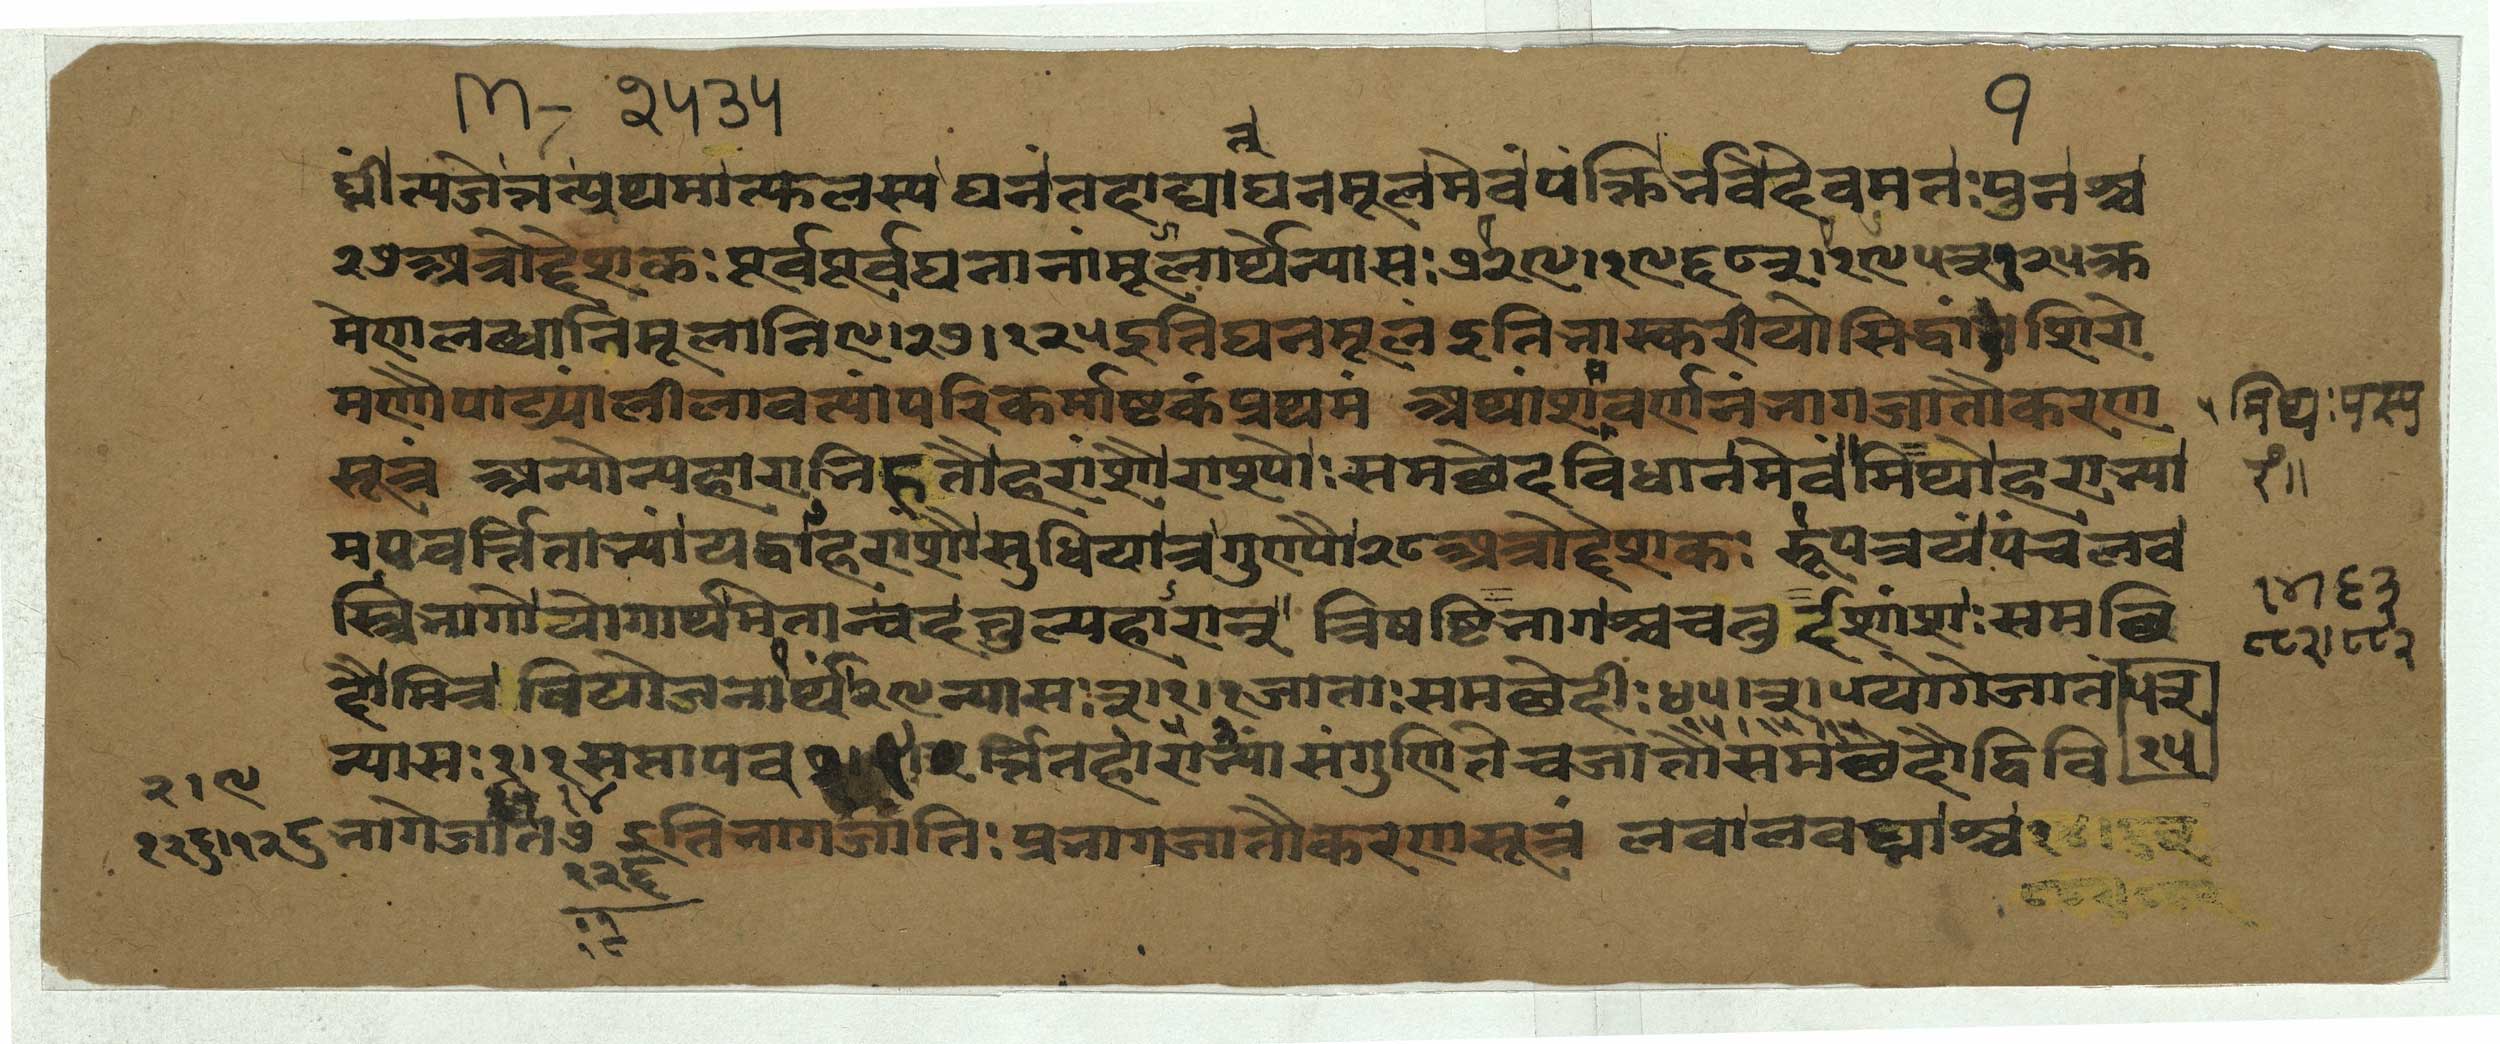 M- २५३५
१
घ्नीं त्यजेत्तत्प्रथमात्फलस्य घनं तदाद्याद्घनमूलमेवं पंक्तिर्भवेदेवमतः पुनश्च
२७ अत्रोद्देशकः पूर्वपूर्वघनानां मूलार्थेन्यासः ७२९। १९६८३। १९५३१२५ क्र
मेण लब्धानि मूलानि ९। २७। १२५ इति घनमूलं इति भास्करीये सिद्धांत शिरो
मणौ पाट्यां लीलावत्यां परिकर्माष्टकं प्रथमं अथांशवर्णनं भागजातौ करण
सूत्रं अन्योन्यहाराभिहतौ हरांशौ राश्योः समच्छेदविधानमेवं मिथो हराभ्या
मपवर्त्तिताभ्यां यद्वा हरांशौ सुधियात्र गुण्यौ २८ अत्रोद्देशकः रूपत्रयं पंचलव
स्त्रिभागो योगार्थमेतान्वद तुल्यहारान् त्रिषष्टिभागश्च चतुर्दशांशः समच्छि
दौ मित्र वियोजनार्थं २९ न्यासः ३। १। १ जाताः समच्छेदाः ४५। ३। ५ योगे जातं ५३
न्यासः १। १ सप्तापवर्त्तितहाराभ्यां संगुणिते च जातौ समच्छेदौ द्वि वि १५
भागे जातं ७ इति भागजातिः प्रभागजातौ करणसूत्रं लवा लवघ्नाश्च
१२६
२। ९
१२६। १२६